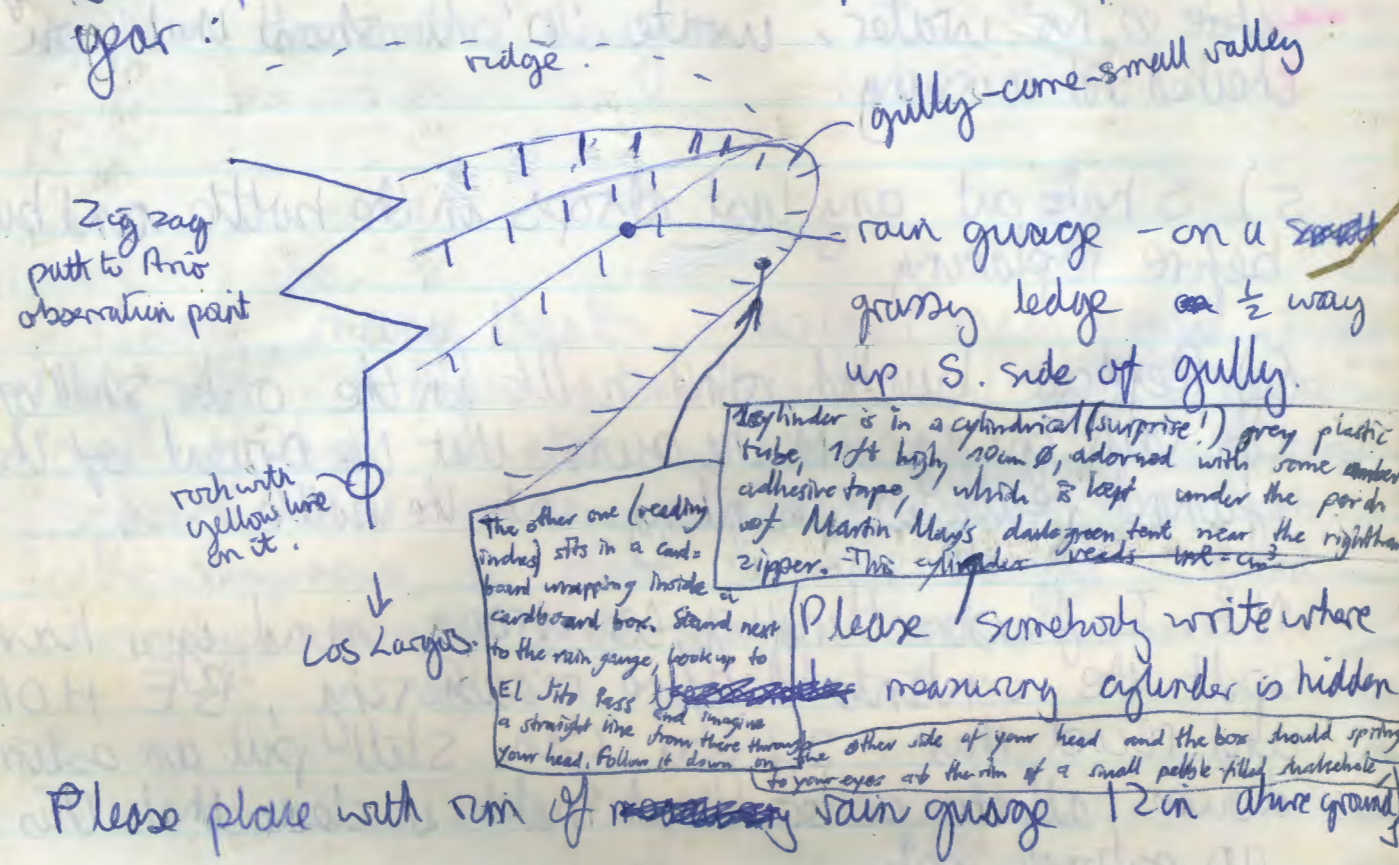 year :
ridge.
gully-come-small valley
Zig zag
path to Ario
observation point
rain guage - on a
grassy ledge ½ way
up S. side of gully.
rock with
yellow line
on it.
Los Largos.
1 cylinder is in a cylindrical (surprise!) grey plastic
tube, 1 ft high, 10cm Ø, adorned with some
adhesive tape, which is kept under the porch
of Martin May's dark green tent near the righthan
zipper. This cylinder reads ml = cm³
The other one (reading
inches) sits in a card=
board wrapping inside a
cardboard box. Stand next
to the rain gauge, look up to
El Jito Pass and imagine
a straight line from there through
your head. Follow it down on the other side of your head and the box should spring
to your eyes at the rim of a small pebble-filled shakehole
Please somebody write where
measuring cylinder is hidden
Please place with rim of rain guage 12 in above ground